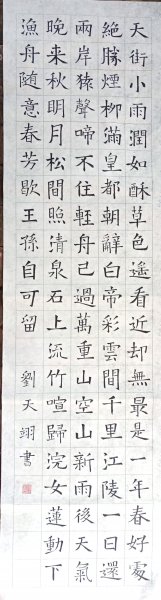 天街小雨潤如酥草色遙看近却無最是一年春好處
絕勝煙柳滿皇都朝辭白帝彩雲間千里江陵一日還
兩岸猿聲啼不住輕舟已過萬重山空山新雨後天氣
晚来秋明月松間照清泉石上流竹喧歸浣女蓮動下
漁舟随意春芳歇王孫自可留 劉天翊書